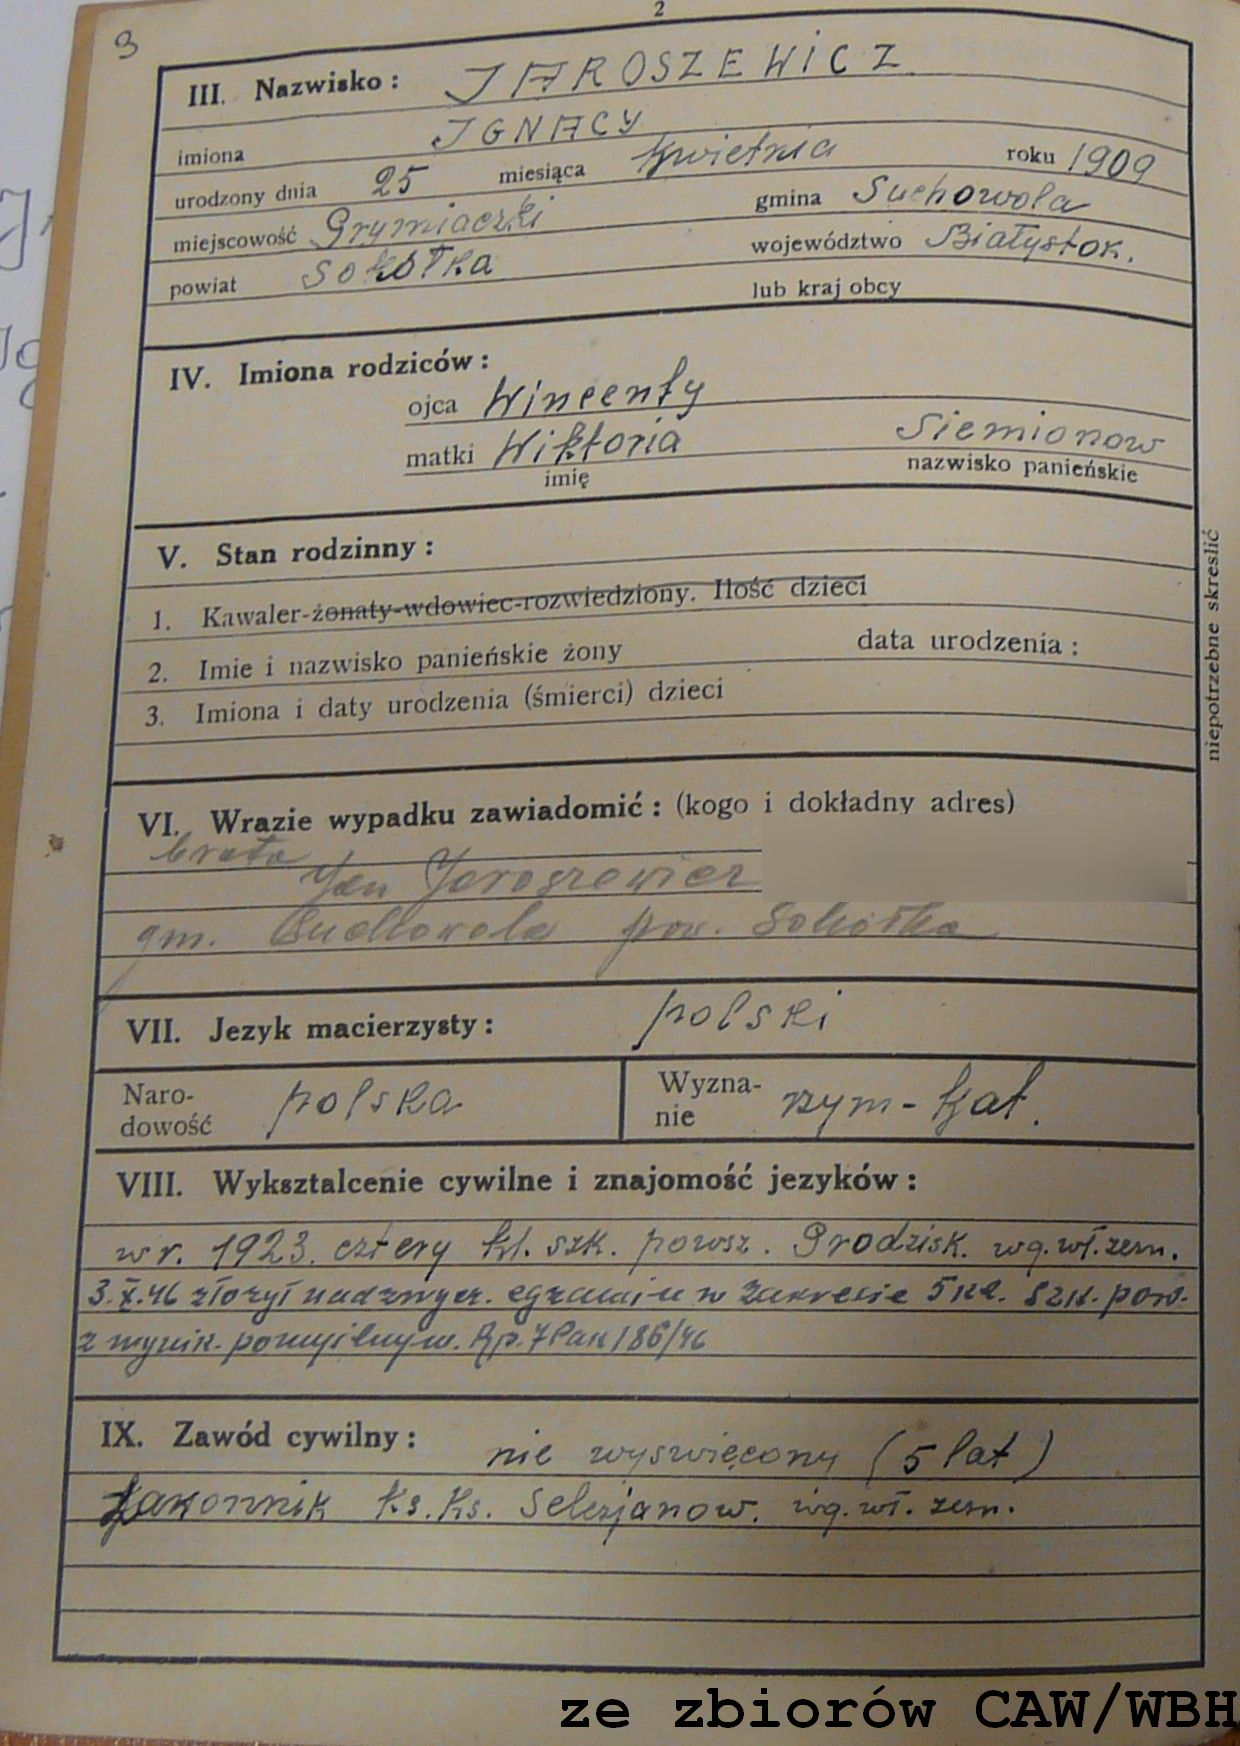 2
3
III. Nazwisko : JAROSZEWICZ
imiona IGNACY
urodzony dnia 25 miesiąca kwietnia roku 1909
miejscowość Grymiaczki gmina Suchowola
powiat Sokółka województwo Białystok.
lub kraj obcy
IV. Imiona rodziców :
ojca Wincenty
matki Wiktoria Siemionow
imię nazwisko panieńskie
V. Stan rodzinny :
1. Kawaler-żonaty-wdowiec-rozwiedziony. Ilość dzieci
2. Imie i nazwisko panieńskie żony data urodzenia :
3. Imiona i daty urodzenia (śmierci) dzieci
niepotrzebne skreslić
VI. Wrazie wypadku zawiadomić : (kogo i dokładny adres)
brata
Jan Jaroszewicz
gm. Suchowola pow. Sokółka
VII. Jezyk macierzysty : polski
Naro-
dowość polska
Wyzna-
nie rzym-kat.
VIII. Wyksztalcenie cywilne i znajomość jezyków :
w r. 1923. cztery kl. szk. powsz. Grodzisk. wg. wł. zezn.
3.X.46 złożył nadzwycz. egzamin w zakresie 5 kl. szk. pow.
z wynik. pomyślnym. Rp. 7 Pan 186/46
IX. Zawód cywilny : nie wyswięcony (5 lat)
zakonnik Ks. Ks. Selezjanow. wg. wł. zezn.
ze zbiorów CAW/WBH